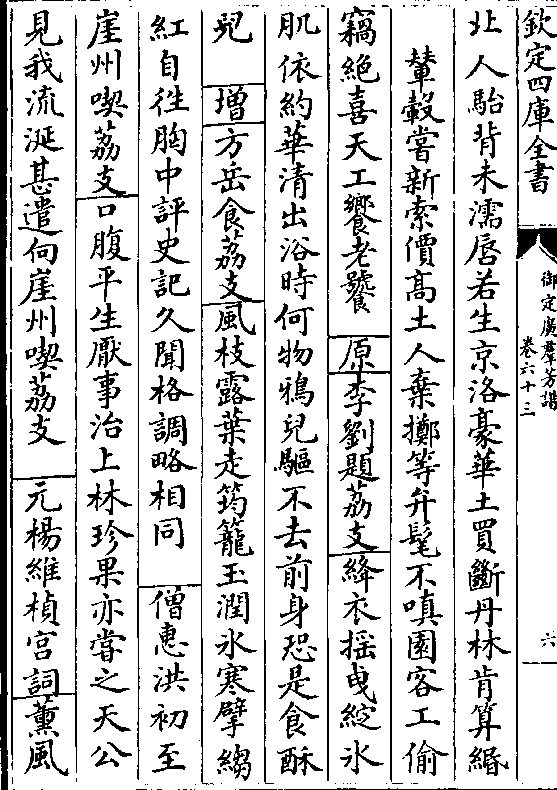 欽定四庫全書
御定廣羣芳譜
卷六十三
六
北人駘背未濡唇若生京洛豪華土買斷丹林肯算緡
輦轂嘗新索價髙土人棄擲等弁髦不嗔園客工偷
竊絶喜天工饗老饕 原 李劉題荔支 絳衣揺曳綻氷
肌依約華清出浴時何物鴉兒驅不去前身恐是食酥
兒 増 方岳食荔支 風枝露葉走筠籠玉潤氷寒擘縐
紅自徃胸中評史記久聞格調略相同 僧惠洪初至
崖州喫荔支 口腹平生厭事治上林珍果亦嘗之天公
見我流涎甚遣向崖州喫荔支 元楊維楨宫詞 薰風